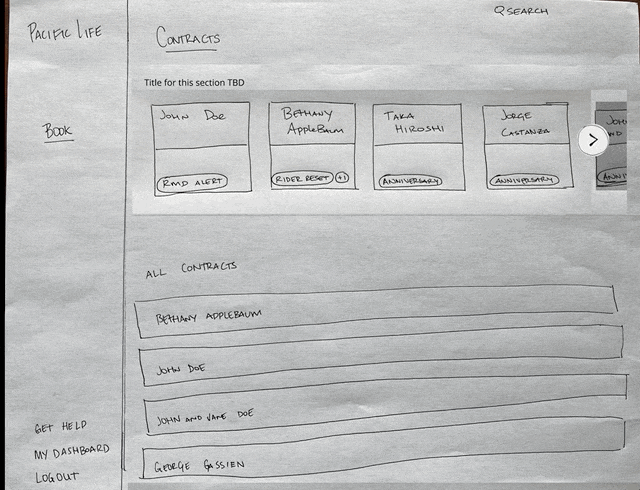 SEARCH
PACIFIC LIFE
CONTRACTS
Title for this section TBD
JOHN DOE
BETHANY
APPLEBAUM
TAKA
HIROSHI
JORGE
CASTANZA
JOH
ND
RMD ALERT
RIDER RESET +1
ANNIVERSARY
ANNIVERSARY
ANNI
BOOK
ALL CONTRACTS
BETHANY APPLEBAUM
JOHN DOE
JOHN AND JANE DOE
GEORGE GASSIEN
GET HELP
MY DASHBOARD
LOGOUT